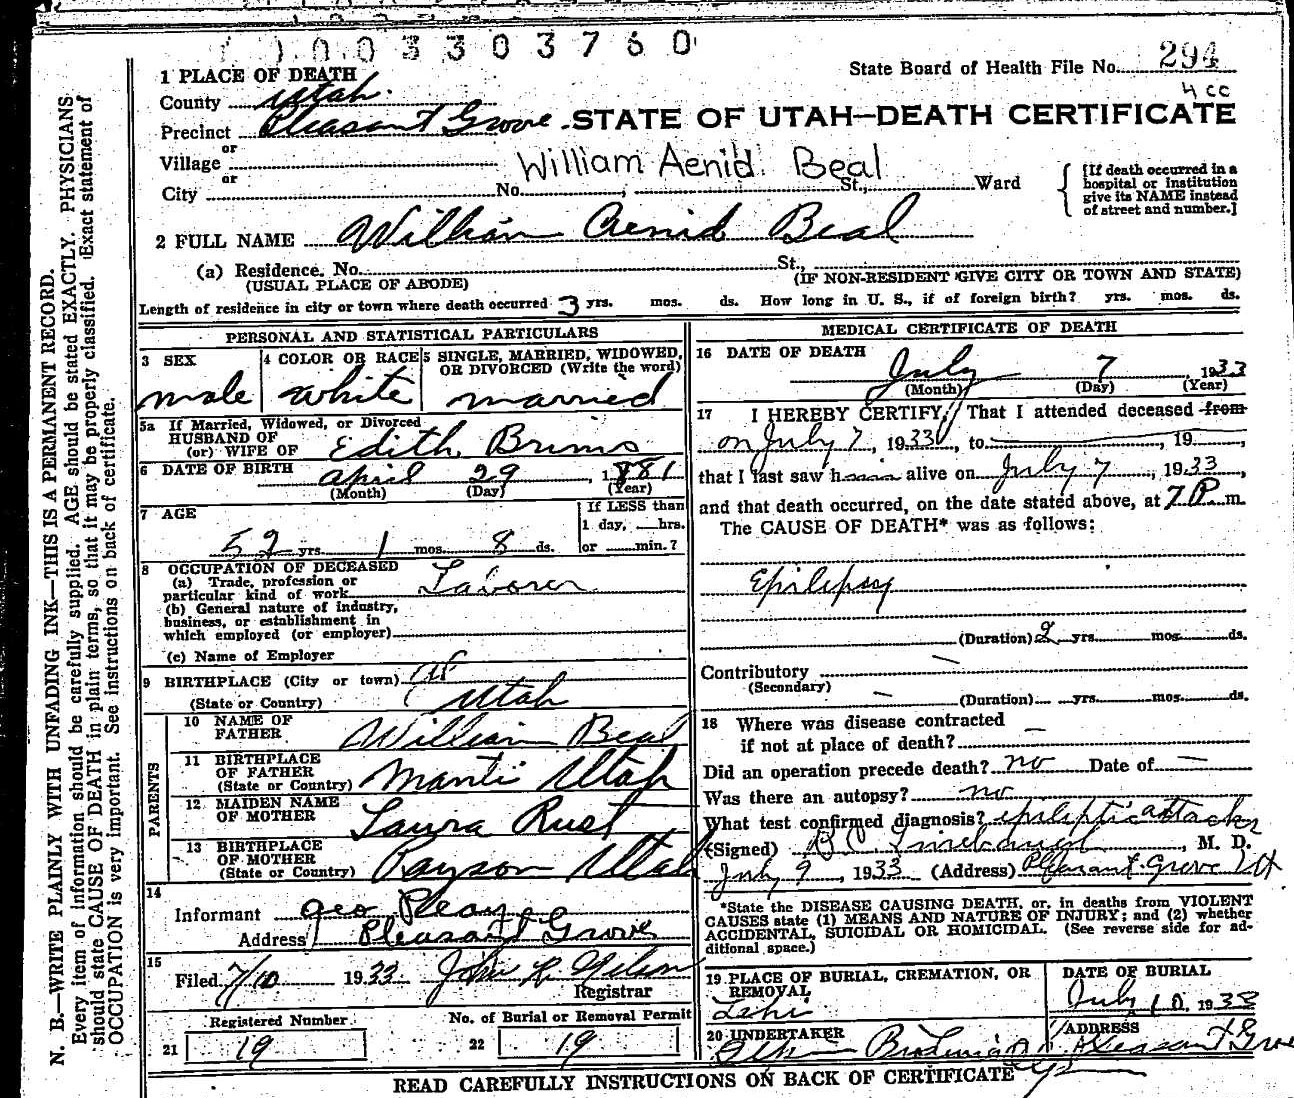 1003303760
State Board of Health File No. 294
4 cc
1 PLACE OF DEATH
County Utah.
Precinct Pleasant Grove
STATE OF UTAH—DEATH CERTIFICATE
or
Village
William Aenid. Beal
or
City No. St., Ward
[If death occurred in a hospital or institution give its NAME instead of street and number.]
2 FULL NAME William Aenid Beal
(a) Residence. No. St.,
(USUAL PLACE OF ABODE) (IF NON-RESIDENT GIVE CITY OR TOWN AND STATE)
Length of residence in city or town where death occurred 3 yrs. mos. ds. How long in U. S., if of foreign birth? yrs. mos. ds.
PERSONAL AND STATISTICAL PARTICULARS
3 SEX
male
4 COLOR OR RACE
white
5 SINGLE, MARRIED, WIDOWED,
OR DIVORCED (Write the word)
married
5a If Married, Widowed, or Divorced
HUSBAND OF
(or) WIFE OF Edith
6 DATE OF BIRTH April 29, 1881
(Month) (Day) (Year)
7 AGE
52 yrs. 1 mos. 8 ds.
If LESS than
1 day, hrs.
or min.?
8 OCCUPATION OF DECEASED
(a) Trade, profession or
particular kind of work Laborer
(b) General nature of industry,
business, or establishment in
which employed (or employer)
(c) Name of Employer
9 BIRTHPLACE (City or town)
(State or Country) Utah
PARENTS
10 NAME OF
FATHER William Beal
11 BIRTHPLACE
OF FATHER
(State or Country) Manti Utah
12 MAIDEN NAME
OF MOTHER Laura Rust
13 BIRTHPLACE
OF MOTHER
(State or Country) Payson Utah
14
Informant Geo
Address Pleasant Grove
15
Filed 7/10 1933
Registrar
Registered Number
21 19
No. of Burial or Removal Permit
22 19
MEDICAL CERTIFICATE OF DEATH
16 DATE OF DEATH
July 7, 1933
(Month) (Day) (Year)
17 I HEREBY CERTIFY, That I attended deceased from
on July 7, 1933, to , 19 ,
that I last saw him alive on July 7, 1933,
and that death occurred, on the date stated above, at 7 P m.
The CAUSE OF DEATH* was as follows:
Epilepsy
(Duration) 2 yrs. mos. ds.
Contributory
(Secondary)
(Duration) yrs. mos. ds.
18 Where was disease contracted
if not at place of death?
Did an operation precede death? no Date of
Was there an autopsy? no
What test confirmed diagnosis? epileptic attacks
(Signed) , M. D.
July 9, 1933 (Address) Pleasant Grove Ut
*State the DISEASE CAUSING DEATH, or, in deaths from VIOLENT
CAUSES state (1) MEANS AND NATURE OF INJURY; and (2) whether
ACCIDENTAL, SUICIDAL OR HOMICIDAL. (See reverse side for ad-
ditional space.)
19 PLACE OF BURIAL, CREMATION, OR
REMOVAL
Lehi
DATE OF BURIAL
July 10, 1933
20 UNDERTAKER
ADDRESS
Pleasant Grove
READ CAREFULLY INSTRUCTIONS ON BACK OF CERTIFICATE
N. B.—WRITE PLAINLY WITH UNFADING INK—THIS IS A PERMANENT RECORD.
Every item of information should be carefully supplied. AGE should be stated EXACTLY. PHYSICIANS
should state CAUSE OF DEATH in plain terms, so that it may be properly classified. Exact statement of
OCCUPATION is very important. See instructions on back of certificate.